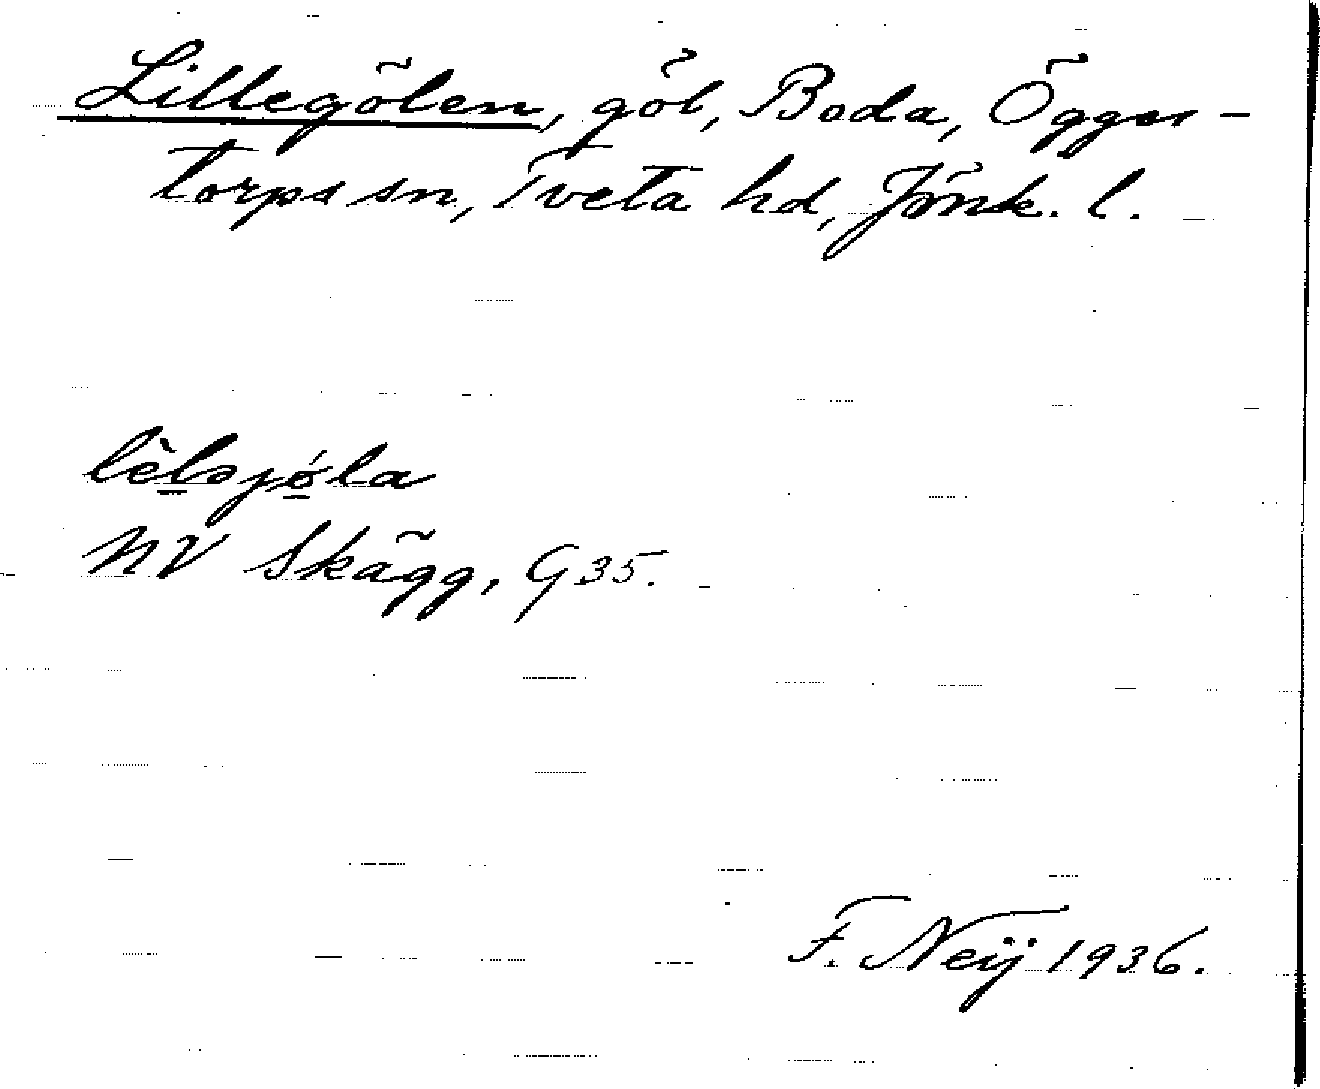 Lillegölen, göl, Boda, Öggers-
torps sn, Tveta hd, Jönk. l.
lèl̲əjǿ̲la
NV Skägg, G35.
F. Neij 1936.